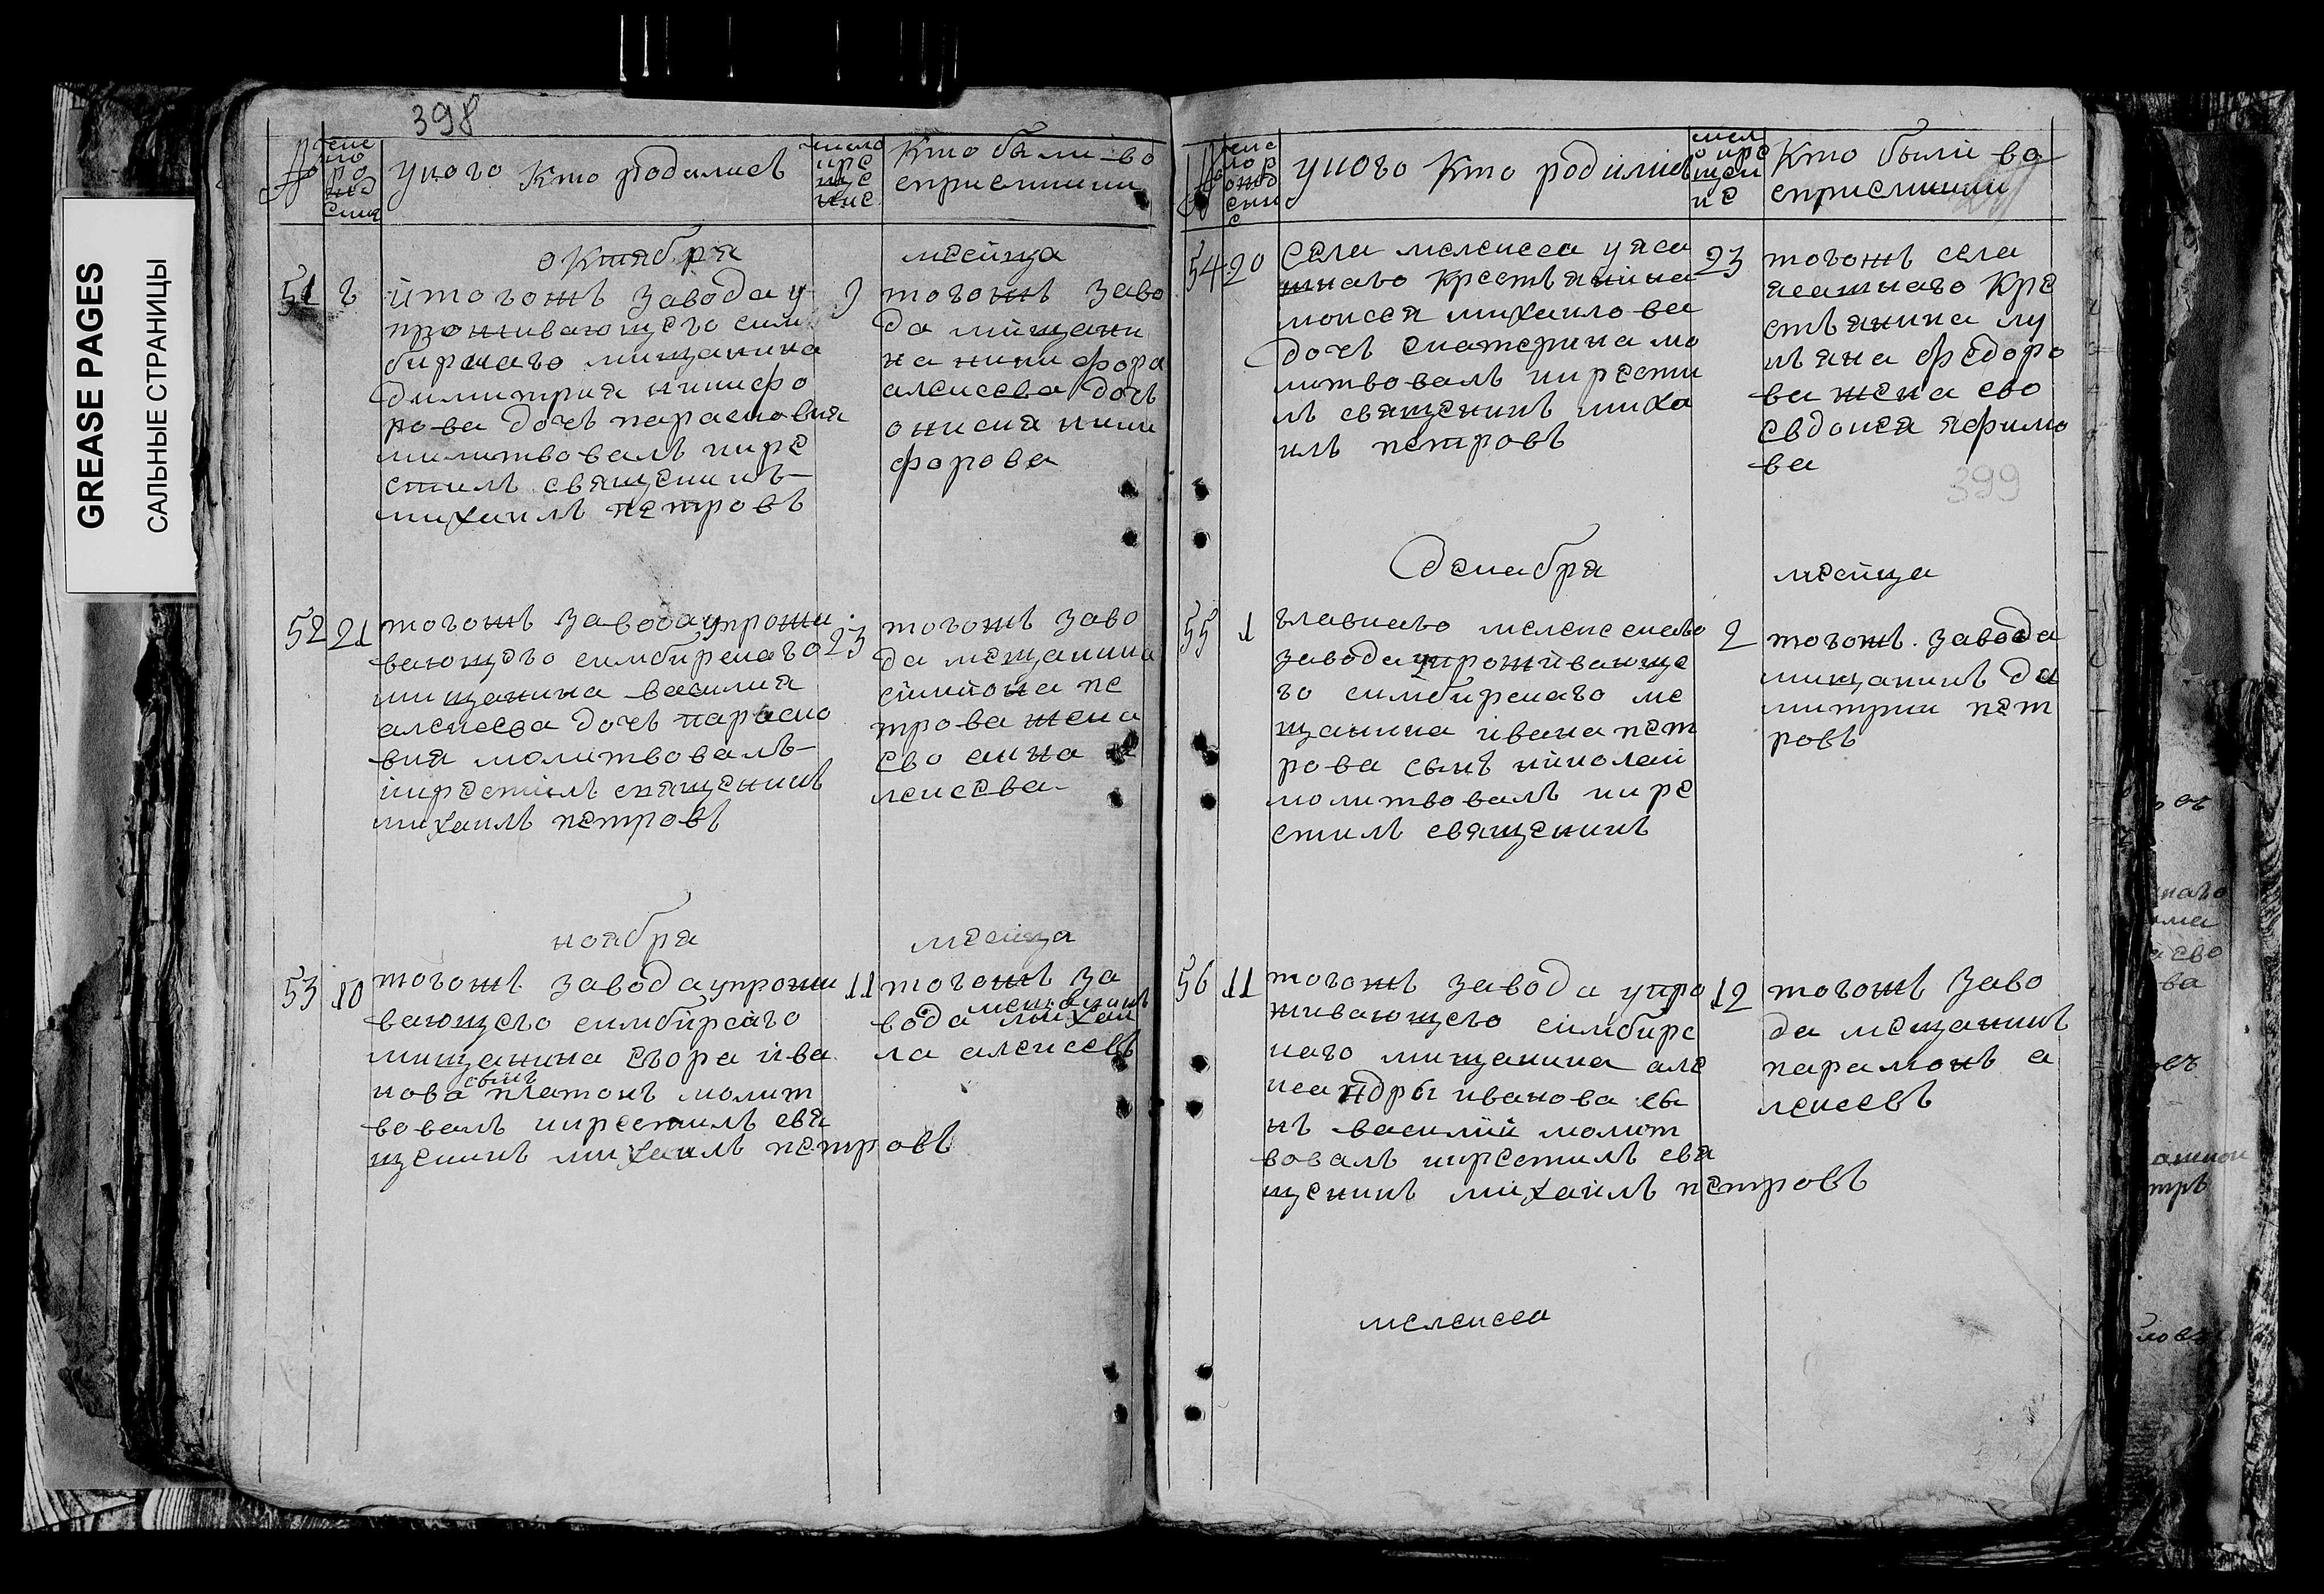 GREASE PAGES
САЛЬНЫЕ СТРАНИЦЫ
398
№
число рождения
укого кто родились
число крещение
кто были во
сприемники
октября
месица
51
8
итогожъ завода у
проживающего сим
бирскаго мищанина
димитрия никифо
рова дочъ парасковия
милитвовалъ икре
стилъ священикъ
михаилъ петровъ
9
тогожъ заво
да мищани
на никифора
алексеева дочъ
онисия ники
форова
52
21
тогожъ завода упрожи
вающего симбирскаго
мищанина василия
алексеева дочъ параско
вия молитвовалъ
икрестилъ священикъ
михаилъ петровъ
23
тогожъ заво
да мещанина
симиона пе
трова жена
ево анна а
лексеева
ноября
месица
53
10
тогожъ завода упрожи
вающего симбирскаго
мищанина егора ива
нова сынъ платонъ молит
вовалъ икрестилъ свя
щеникъ михаилъ петровъ
11
тогожъ за
вода мещанинъ михаи
ла алексеевъ
№
число рождение
укого кто родились
число крещение
кто были во
сприемники
54
20
села мелекеса у яса
шнаго крестьянина
моисея михаилова
дочъ екатерина мо
литвовалъ икрести
лъ священикъ миха
илъ петровъ
23
тогожъ села
ясашнаго кре
стьянина лу
кьяна федоро
ва жена ево
евдокея яфимо
ва
399
декабря
месица
55
1
главнаго мелекескаго
завода упроживающе
го симбирскаго ме
щанина ивана пет
рова сынъ николай
молитвовалъ икре
стилъ священикъ
2
тогожъ завода
мищанинъ ди
митрии пет
ровъ
56
11
тогожъ завода упро
живающего симбирс
каго мищанина але
ксандры иванова сы
нъ василий молит
вовалъ икрестилъ свя
щеникъ михаилъ петровъ
12
тогожъ заво
да мещанинъ
парамонъ а
лексеевъ
мелекеса